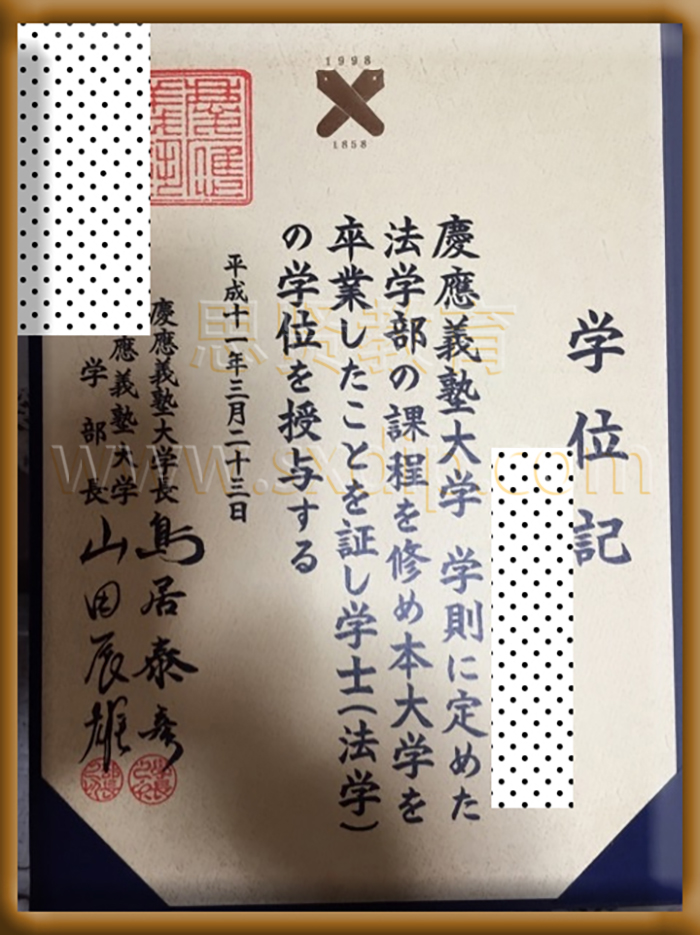 1998
1858
学位記
慶應義塾大学 学則に定めた
法学部の課程を修め本大学を
卒業したことを証し学士(法学)
の学位を授与する
平成十一年三月二十三日
慶應義塾大学長 鳥居泰彦
應義塾大学
学部長 山田辰雄
思贤教育